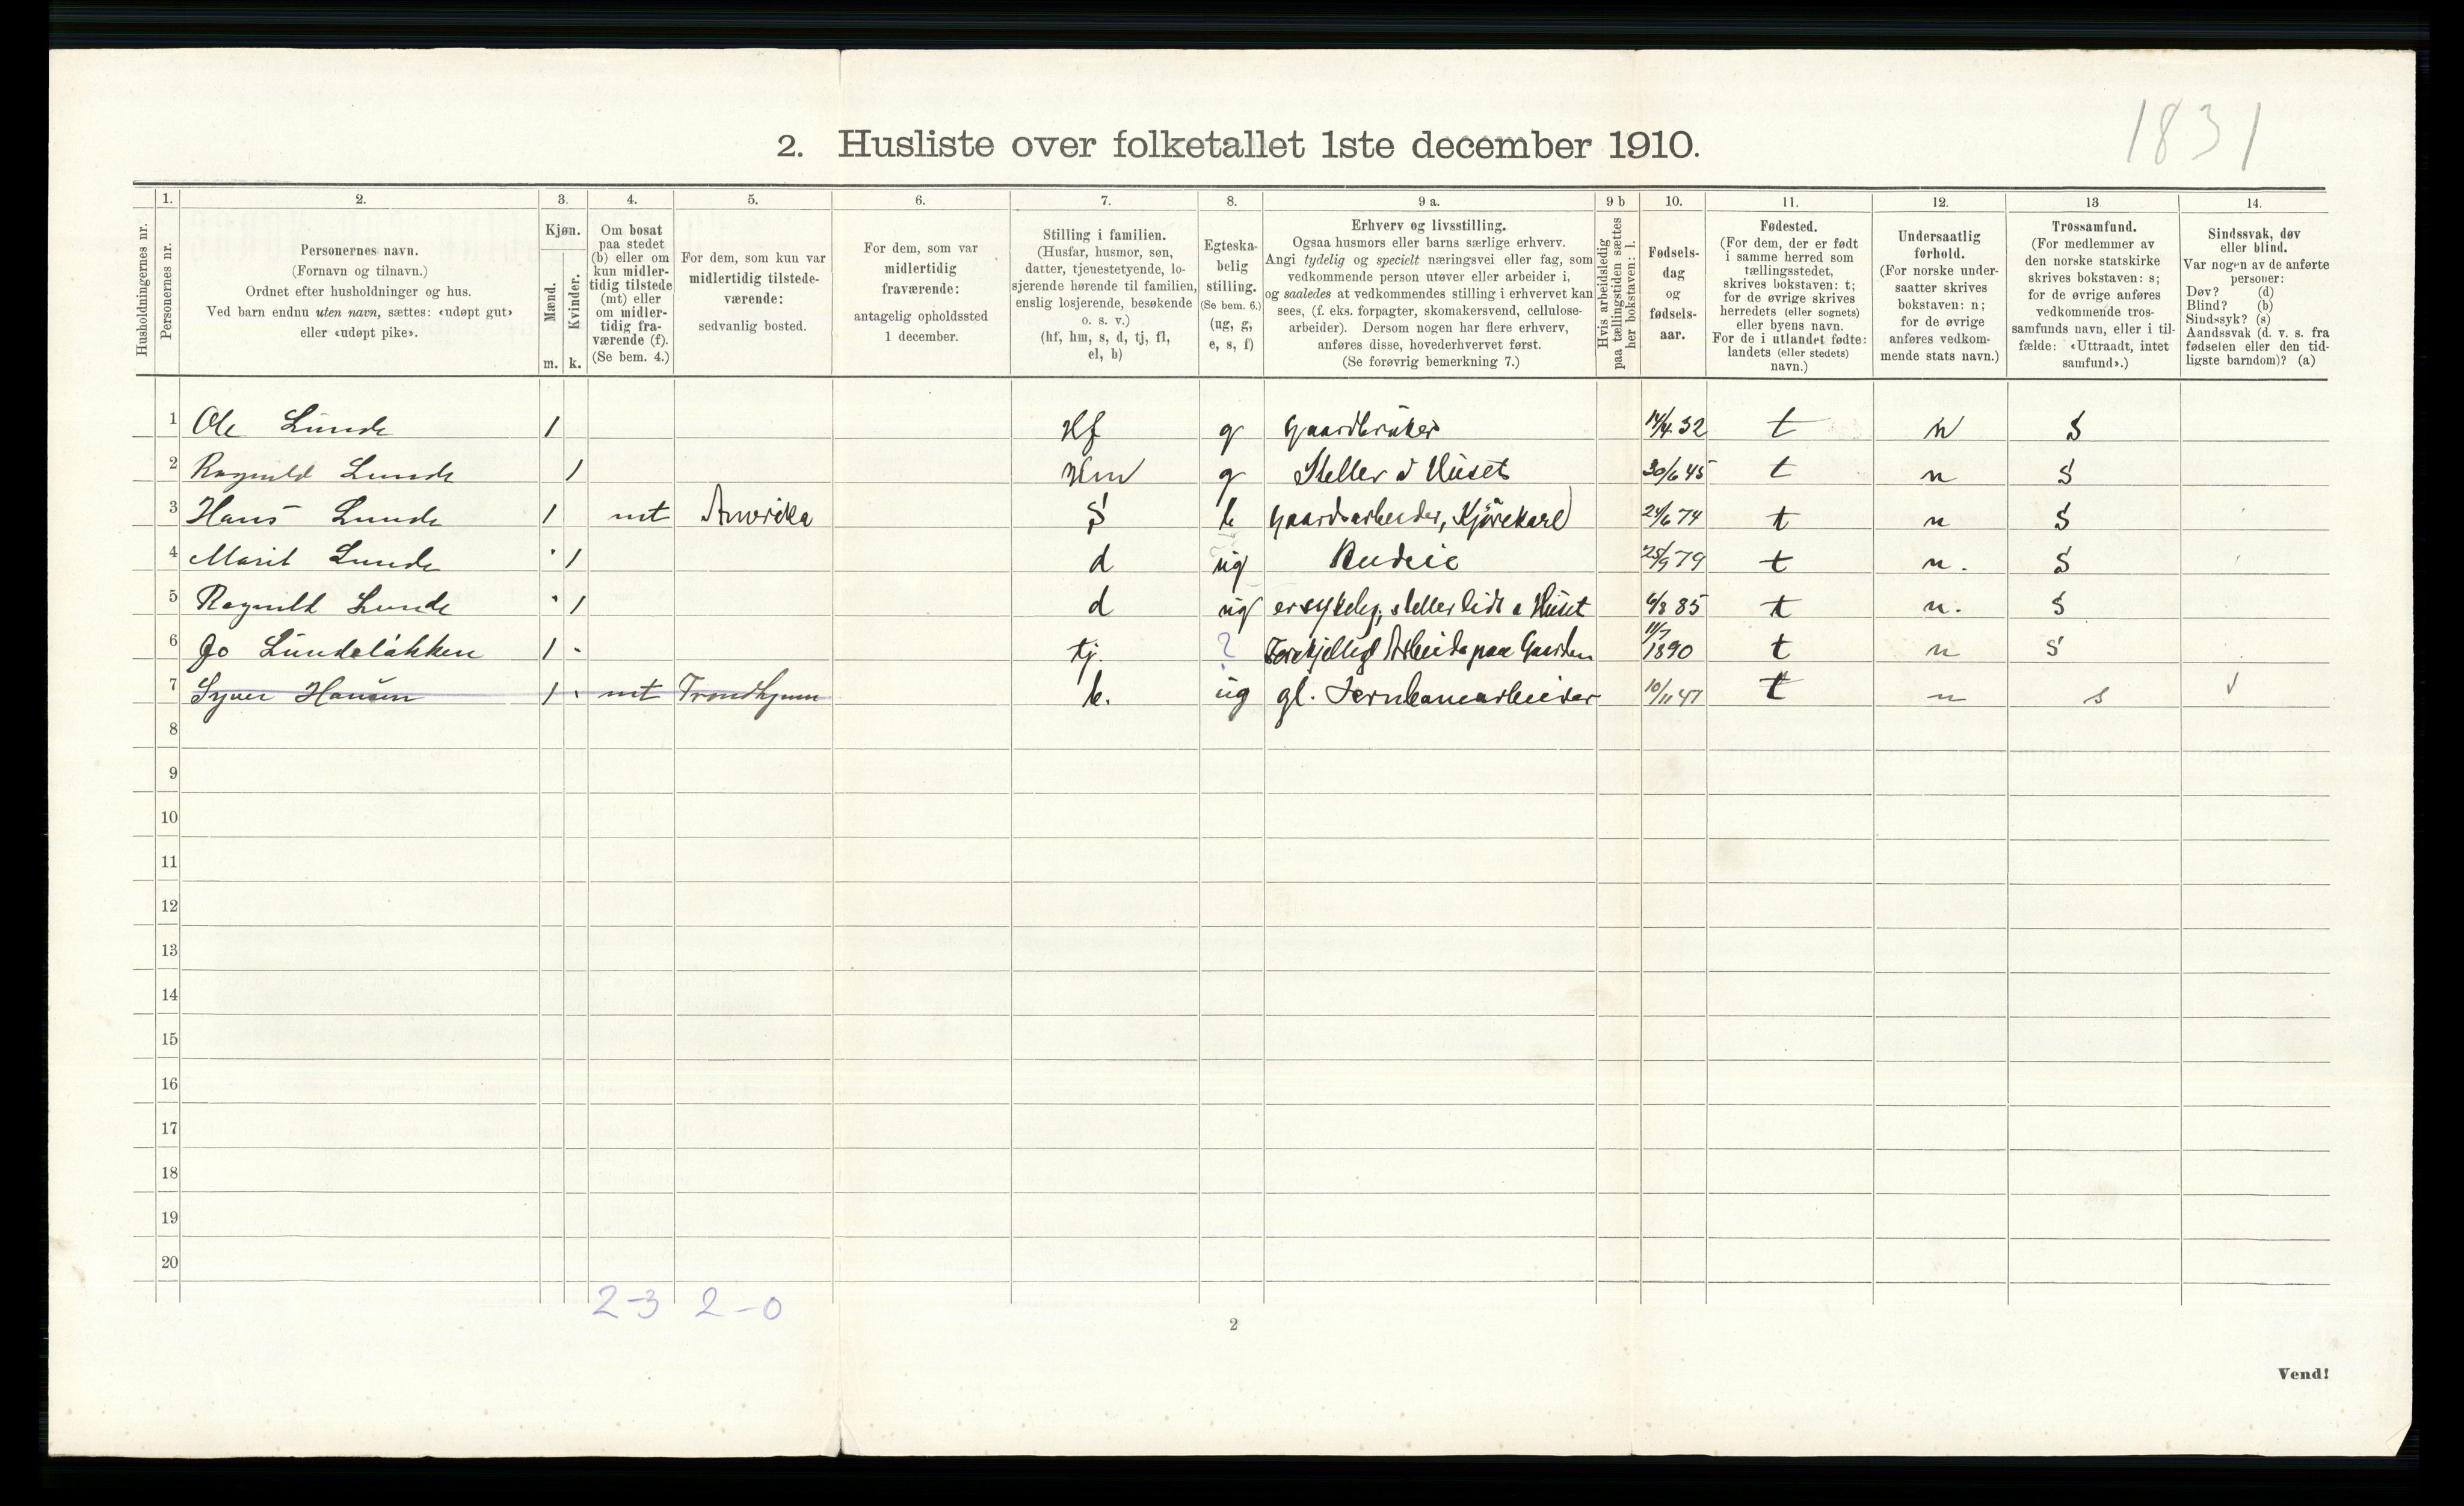 1831
2. Husliste over folketallet 1ste december 1910.
1. 2. 3. 4. 5. 6. 7. 8. 9 a. 9 b 10. 11. 12. 13 14.
Husholdningernes nr.
Personernes nr.
Personernes navn.
(Fornavn og tilnavn.)
Ordnet efter husholdninger og hus.
Ved barn endnu uten navn, sættes: «udøpt gut»
eller «udøpt pike».
Kjøn.
Mænd.
Kvinder.
m. k.
Om bosat
paa stedet
(b) eller om
kun midler-
tidig tilstede
(mt) eller
om midler-
tidig fra-
værende (f).
(Se bem. 4.)
For dem, som kun var
midlertidig tilstede-
værende:
sedvanlig bosted.
For dem, som var
midlertidig
fraværende:
antagelig opholdssted
1 december.
Stilling i familien.
(Husfar, husmor, søn,
datter, tjenestetyende, lo-
sjerende hørende til familien,
enslig losjerende, besøkende
o. s. v.)
(hf, hm, s, d, tj, fl,
el, b)
Egteska-
belig
stilling.
(Se bem. 6.)
(ug, g,
e, s, f)
Erhverv og livsstilling.
Ogsaa husmors eller barns særlige erhverv.
Angi tydelig og specielt næringsvei eller fag, som
vedkommende person utøver eller arbeider i,
og saaledes at vedkommendes stilling i erhvervet kan
sees, (f. eks. forpagter, skomakersvend, cellulose-
arbeider). Dersom nogen har flere erhverv,
anføres disse, hovederhvervet først.
(Se forøvrig bemerkning 7.)
Hvis arbeidsledig
paa tællingstiden sættes
her bokstaven: l.
Fødsels-
dag
og
fødsels-
aar.
Fødested.
(For dem, der er født
i samme herred som
tællingsstedet,
skrives bokstaven: t;
for de øvrige skrives
herredets (eller sognets)
eller byens navn.
For de i utlandet fødte:
landets (eller stedets)
navn.)
Undersaatlig
forhold.
(For norske under-
saatter skrives
bokstaven: n;
for de øvrige
anføres vedkom-
mende stats navn.)
Trossamfund.
(For medlemmer av
den norske statskirke
skrives bokstaven: s;
for de øvrige anføres
vedkommende tros-
samfunds navn, eller i til-
fælde: «Uttraadt, intet
samfund».)
Sindssvak, døv
eller blind.
Var nogen av de anførte
personer:
Døv? (d)
Blind? (b)
Sindssyk? (s)
Aandssvak (d. v. s. fra
fødselen eller den tid-
ligste barndom)? (a)
1 Ole Lunde 1 Hf g Gaardbruker 14/4 32 t n S
2 Ragnild Lunde 1 Hm g Steller i Huset 30/6 45 t n S
3 Hans Lunde 1 mt Amerika S Gaardsarbeider, Kjørekarl 24/6 74 t n S
4 Marit Lunde 1 d ug Budeie 25/9 79 t n. S
5 Ragnild Lunde 1 d ug er sykelig, steller lidt i Huset 6/8 85 t n. S
6 Jo Lundeløkken 1 tj. ? Forskjelligt Arbeide paa Gaarden 11/7 1890 t n S
7 Syver Hansen 1 mt Trondhjem b. ug gl. Jernbanearbeider 10/11 47 t n s
8
9
10
11
12
13
14
15
16
17
18
19
20
2-3 2-0
2
Vend!